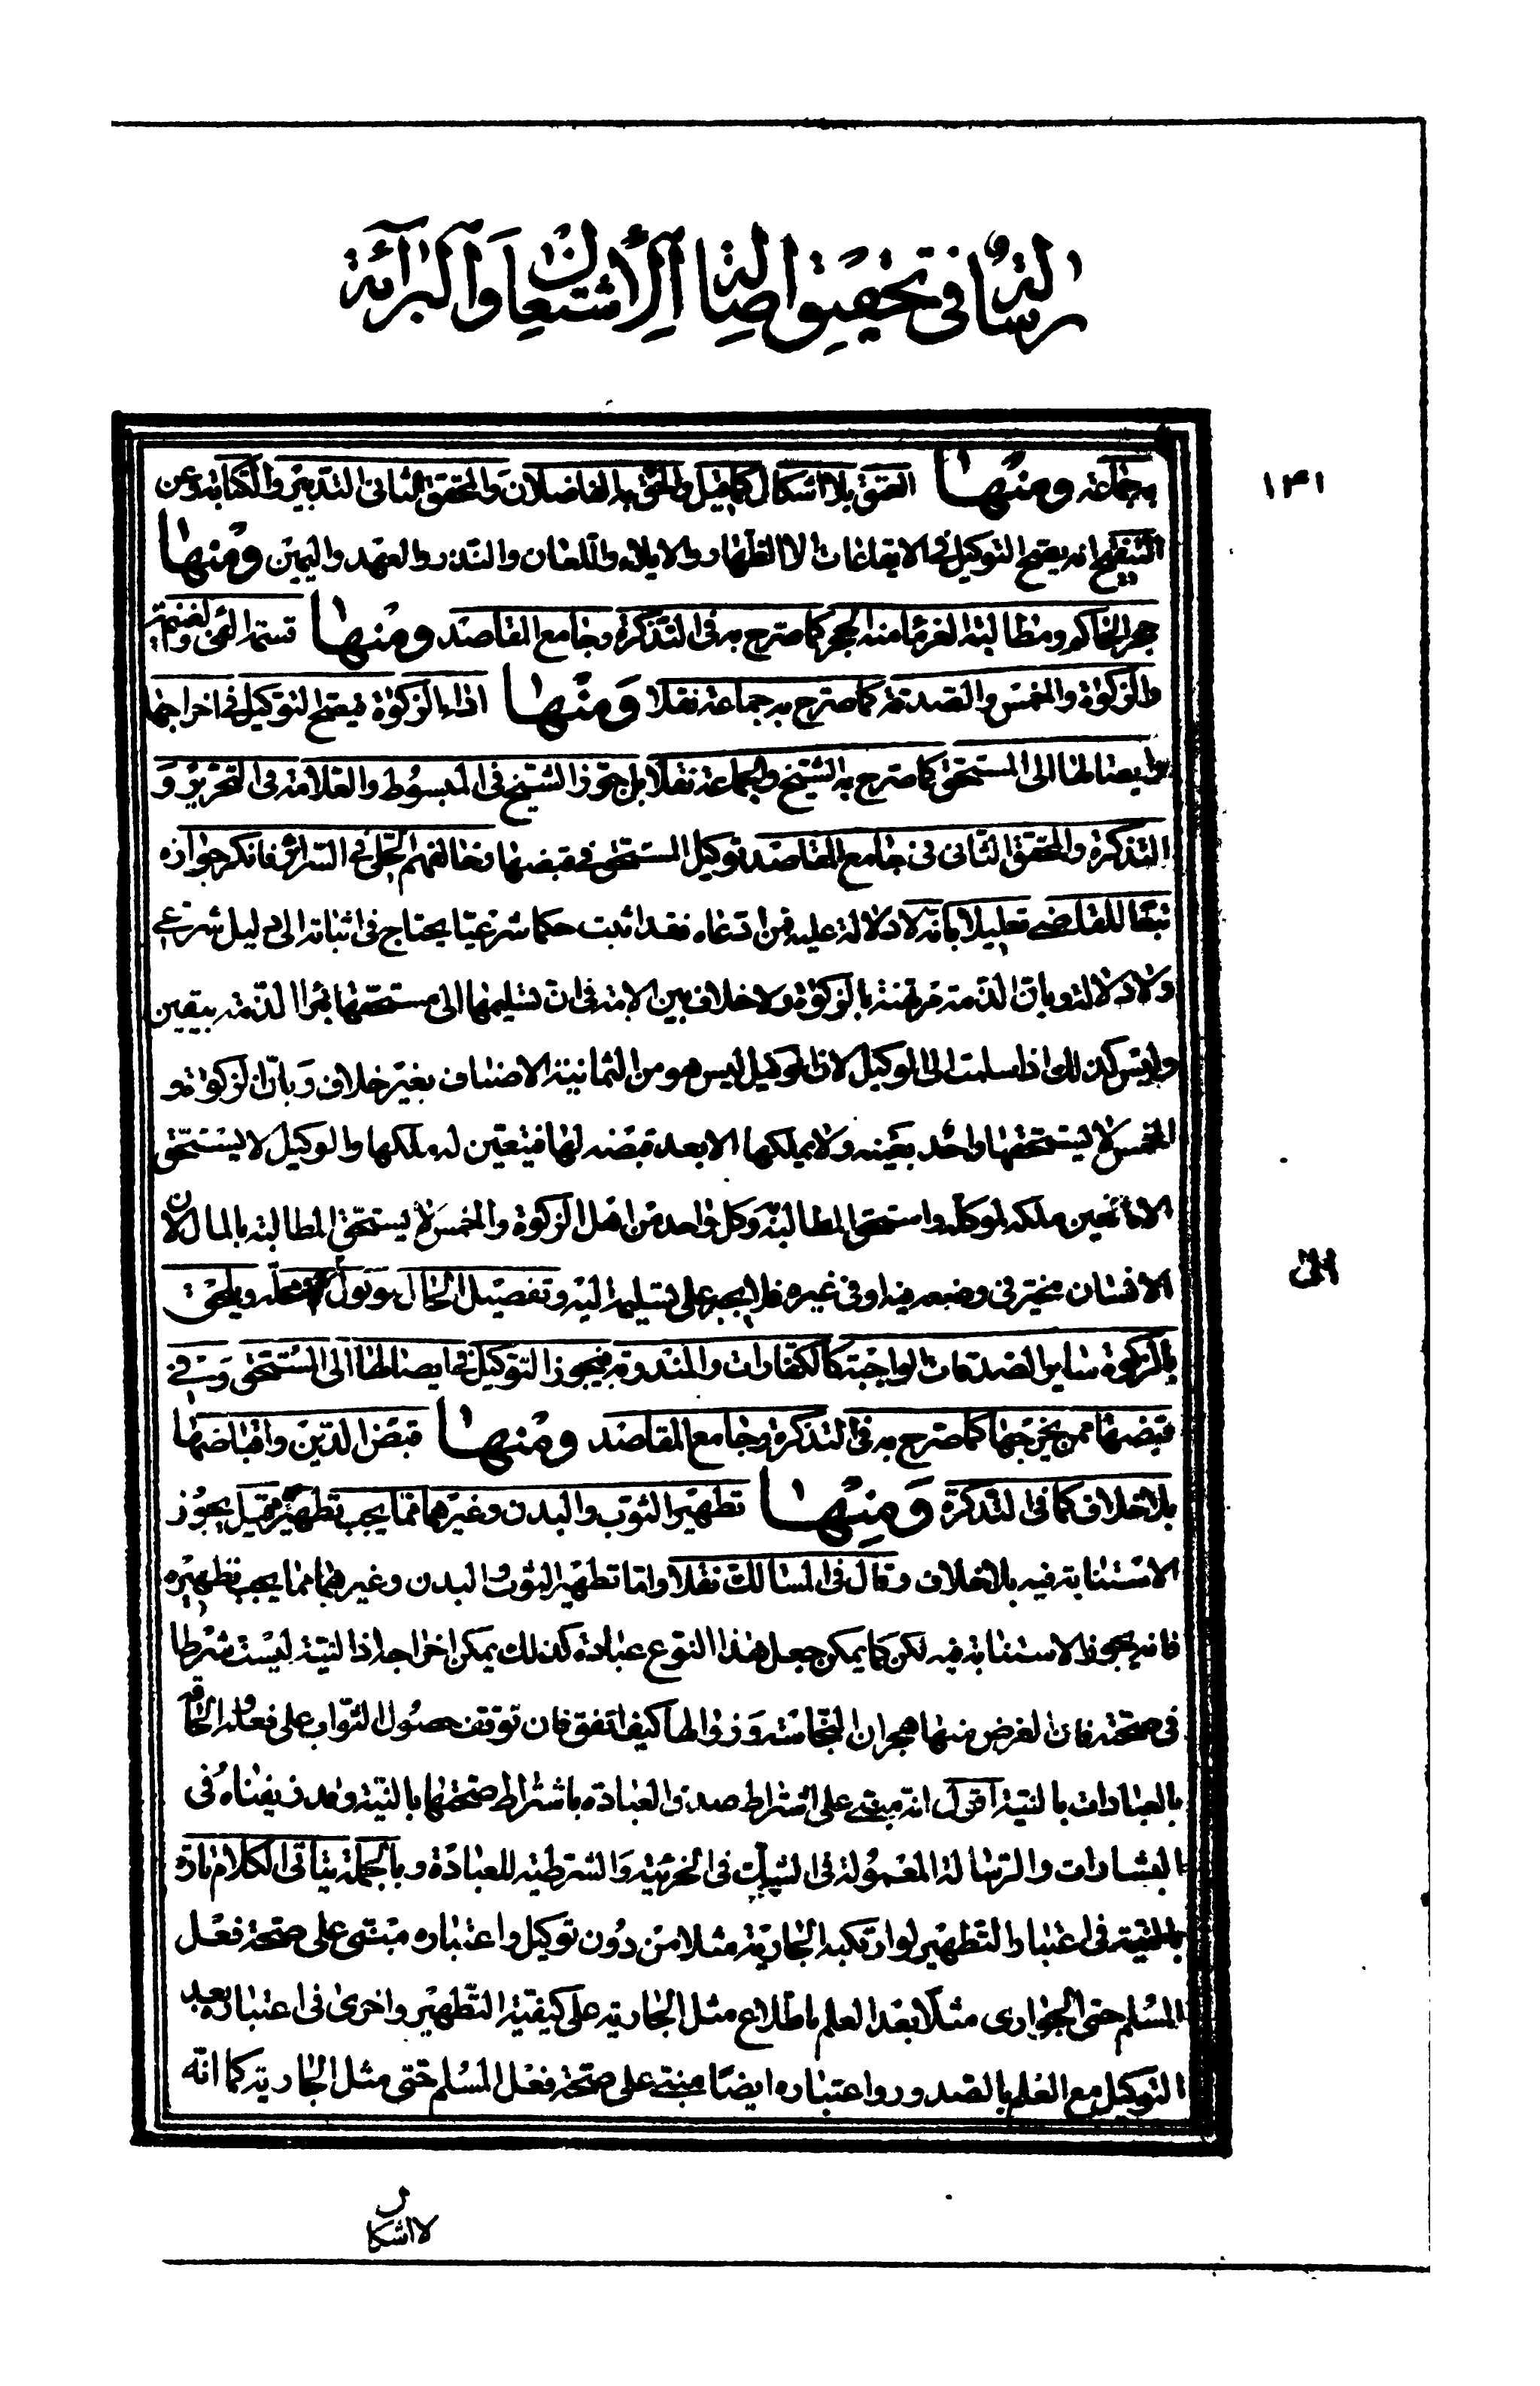 رسالة في تحقيق اصالة الاشتغال والبرائة
١٣١
به جماعة ومنها العتق بلا اشكال كما قيل والحق به الفاضلان والمحقق الثانى التدبير والكتابة وعن
التنقيح انه يصح التوكيل فى الايقاعات الا الظهار والايلاء واللعان والنذر والعهد واليمين ومنها
حجر الحاكم ومطالبة الغرماء منه الحجر كما صرح به فى التذكرة وجامع المقاصد ومنها قسمة الفئ والغنيمة
والزكوة والخمس والصدقة كما صرح به جماعة نقلا ومنها اداء الزكوة فيصح التوكيل فى اخراجها
وايصالها الى المستحق كما صرح به الشيخ والجماعة نقلا بل جوز الشيخ فى المبسوط والعلامة فى التحرير و
التذكرة والمحقق الثانى فى جامع المقاصد توكيل المستحق فى قبضها وخالفهم الحلى فى السرائر فانكر جوازه
تبعا للقاضى تعليلا بانه لا دلالة عليه فمن ادعاه فقد اثبت حكما شرعيا يحتاج فى اثباته الى دليل شرعى
ولا دلالة وبان الذمة مرتهنة بالزكوة ولا خلاف بين الامة فى ان تسليمها الى مستحقها تبرا الذمة بيقين
وليس كذلك اذا سلمت الى الوكيل لان الوكيل ليس هو من الثمانية الاصناف بغير خلاف وبان الزكوة و
الخمس لا يستحقها واحد بعينه ولا يملكها الا بعد قبضه لها فيتعين له ملكها والوكيل لا يستحق
الا ما تعين ملكه لموكله واستحق المطالبة وكل واحد من اهل الزكوة والخمس لا يستحق المطالبة بالمال لان
الانسان مخير فى وضعه فيه او فى غيره فلا يجبر على تسليمه اليه وتفصيل الحال موكول الى محله ويلحق
الى
بالزكوة ساير الصدقات الواجبة كالكفارات والمندوبة فيجوز التوكيل فى ايصالها الى المستحق و فى
قبضها ممن يخرجها كما صرح به فى التذكرة وجامع المقاصد ومنها قبض الديون واقباضها
بلا خلاف كما فى التذكرة ومنها تطهير الثوب والبدن وغيرهما مما يجب تطهيره قيل يجوز
الاستنابة فيه بلا خلاف وقال فى المسالك نقلا واما تطهير الثوب والبدن وغيرهما مما يجب تطهيره
فانه يجوز الاستنابة فيه لكن كما يمكن جعل هذا النوع عبادة كذلك يمكن اخراجه اذ النية ليست شرطا
فى صحته فان الغرض منها هجران النجاسة وزوالها كيف اتفق فان توقف حصول الثواب على فعله والحاقه
بالعبادات بالنية اقول انه مبنى على اشتراط صدق العبادة باشتراط صحتها بالنية وقد زيفناه فى
البشارات والرسالة المعمولة فى الشك فى الجزئية والشرطية للعبادة وبالجملة يتاتى الكلام تارة
بالنسبة فى اعتبار التطهير لو ارتكبه الجارية مثلا من دون توكيل واعتباره مبتنى على صحة فعل
المسلم حتى الجوارى مثلا بعد العلم باطلاع مثل الجارية على كيفية التطهير واخرى فى اعتباره بعد
التوكيل مع العلم بالصدور واعتباره ايضا مبنى على صحة فعل المسلم حتى مثل الجارية كما انه
لا اشكال